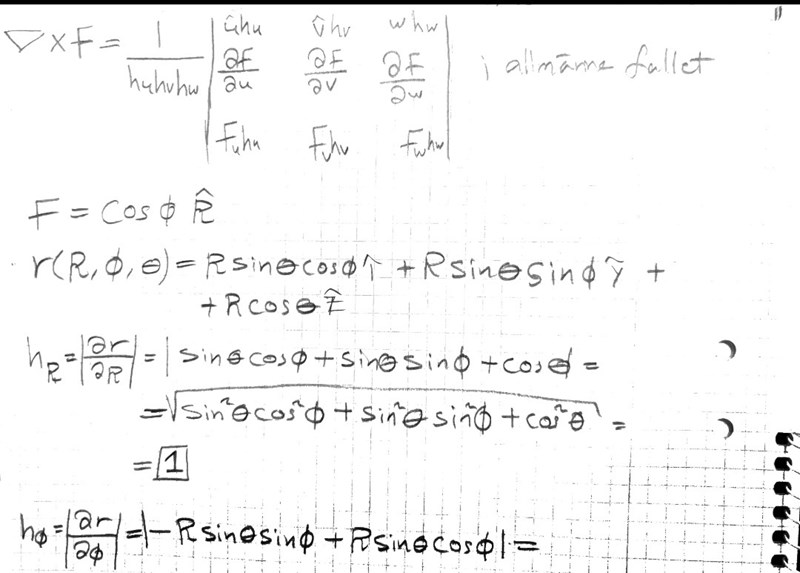 ∇×F = 1/(huhvhw) | ûhu v̂hv ŵhw |
| ∂F/∂u ∂F/∂v ∂F/∂w | i allmänna fallet
| Fuhu Fvhv Fwhw |
F = cos ϕ R̂
r(R, ϕ, θ) = R sinθ cosϕ x̂ + R sinθ sinϕ ŷ +
+ R cosθ ẑ
hR = |∂r/∂R| = | sinθ cosϕ + sinθ sinϕ + cosθ| =
= √(sin²θ cos²ϕ + sin²θ sin²ϕ + cos²θ) =
= 1
hϕ = |∂r/∂ϕ| = |−R sinθ sinϕ + R sinθ cosϕ| =